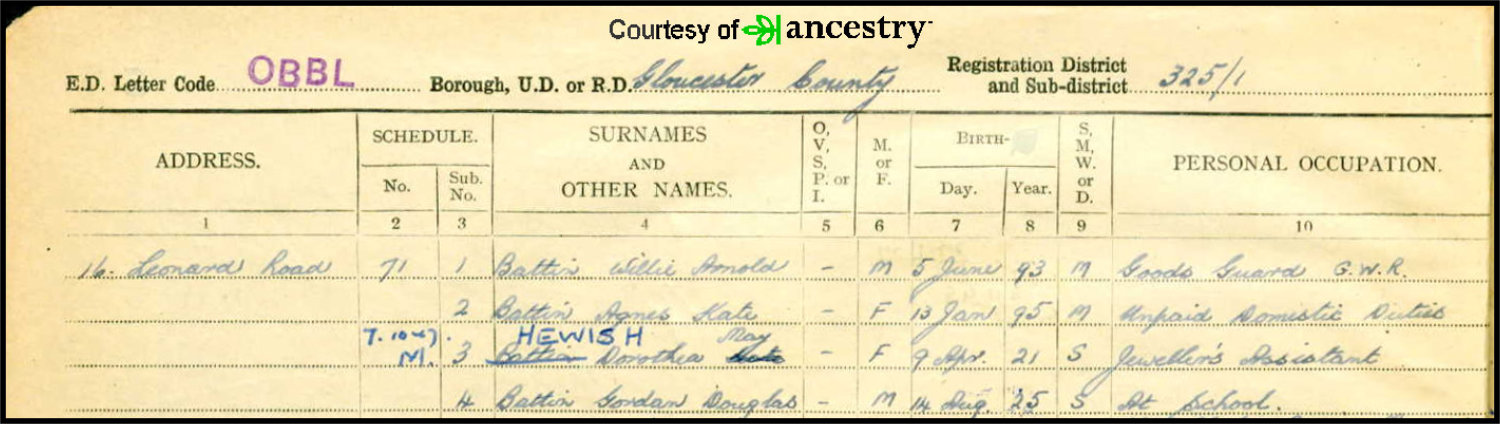 Courtesy of ancestry
E.D. Letter Code OBBL Borough, U.D. or R.D. Gloucester County Registration District and Sub-district 325/1
ADDRESS. SCHEDULE. No. Sub. No. SURNAMES AND OTHER NAMES. O, V, S, P. or I. M. or F. BIRTH- Day. Year. S, M, W. or D. PERSONAL OCCUPATION.
1 2 3 4 5 6 7 8 9 10
16. Leonard Road 71 1 Battin Willie Arnold - M 5 June 93 M Goods Guard G.W.R.
2 Battin Agnes Kate - F 13 Jan 95 M Unpaid Domestic Duties
7. 10 47. HEWISH May
M. 3 Battin Dorothea - F 9 Apr. 21 S Jeweller's Assistant
4 Battin Gordan Douglas - M 14 Aug. 25 S At School.